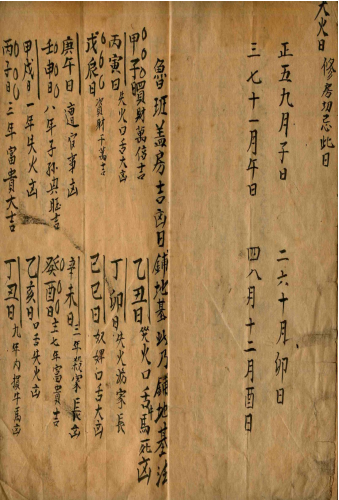 天火日 修房切忌此日
正五九月子日 二六十月卯日
三七十一月午日 四八月十二月酉日
魯班盖房吉凶日鋪地基以乃鋪地基法
甲子 買財萬倍吉
乙丑日 失火口舌馬死凶
丙寅日 失火口舌大凶
丁卯日 失火 家長
戊辰日 資財千萬吉
己巳日 奴婢口舌大凶
庚午日 遭官事凶
辛未日 三年殺家長凶
壬申日 八年子孫興旺吉
癸酉日 主七年富貴吉
甲戌日 一年失火凶
乙亥日 口舌失火凶
丙子日 三年富貴大吉
丁丑日 九年内損牛馬凶